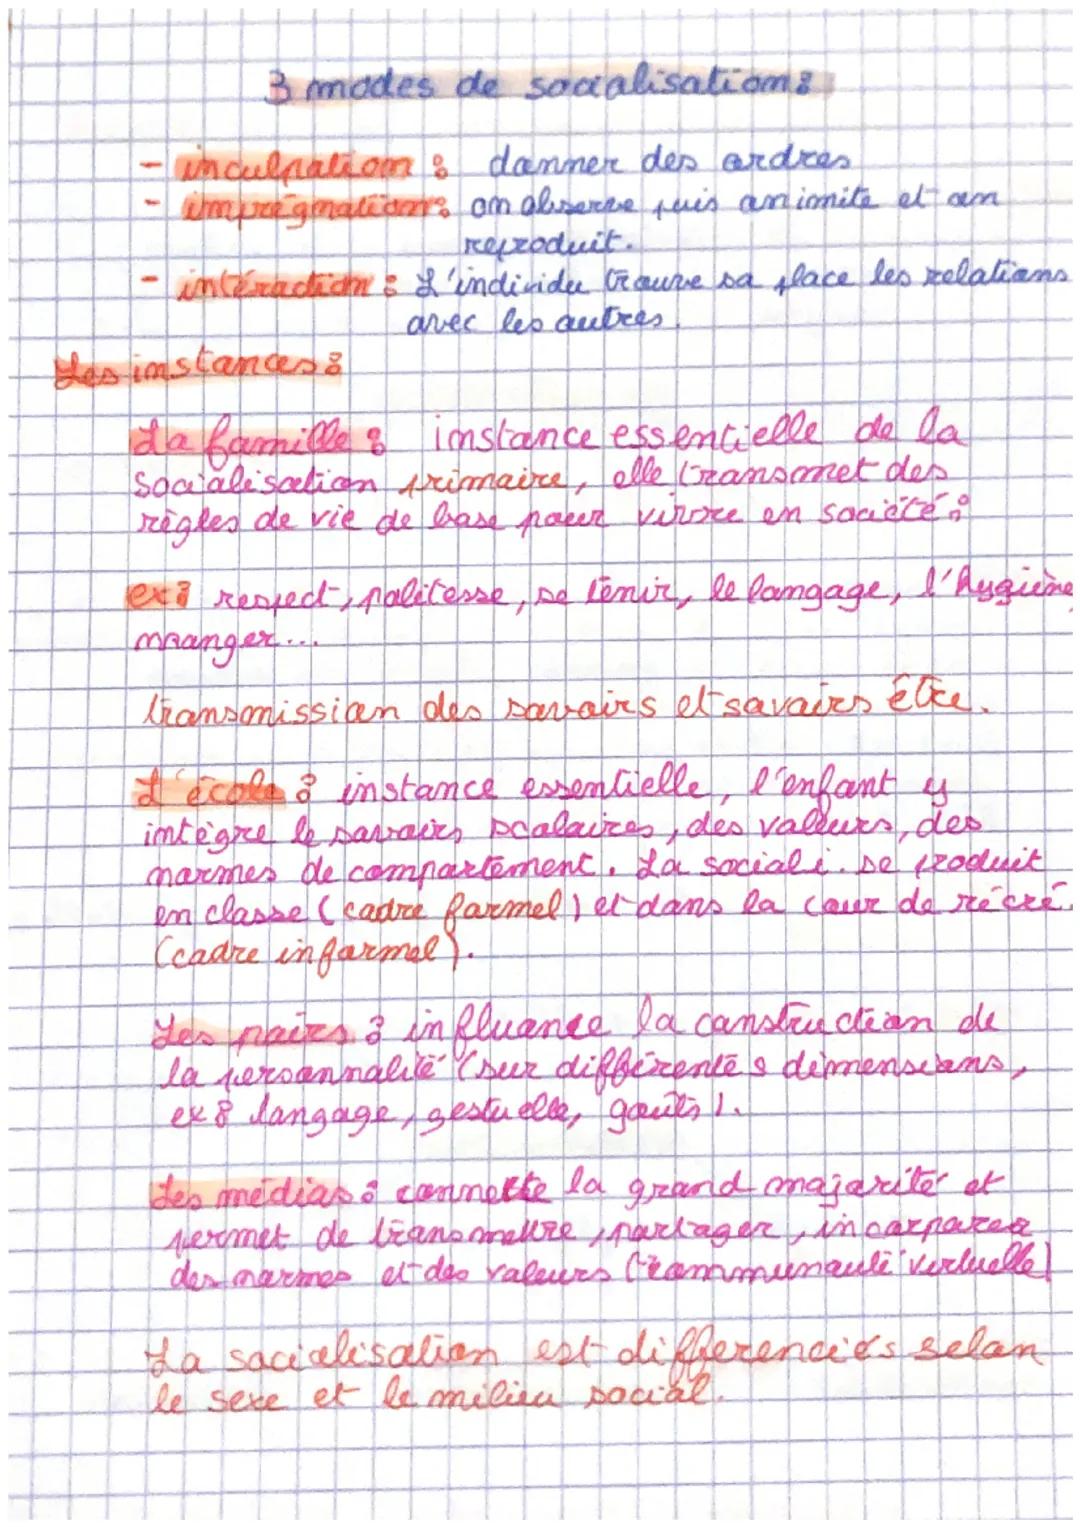 3 modes de socialisation :
- inculpation : donner des ordres
- imprégnation : on observe puis on imite et on
reproduit.
- intéraction : L'individu trouve sa place les relations
avec les autres.
Les instances :
La famille : instance essentielle de la
socialisation primaire, elle transmet des
règles de vie de base pour vivre en société :
ex : respect, politesse, se tenir, le langage, l'hygiène,
manger...
transmission des savoirs et savoirs être.
L'école : instance essentielle, l'enfant y
intègre le savoirs scolaires, des valeurs, des
normes de comportement. La sociali. se produit
en classe (cadre formel) et dans la cour de récré.
(cadre informel).
Les pairs : influance la construction de
la personnalité (sur différentes dimensions,
ex : langage, gestuelle, goûts).
Les médias : connecte la grand majorité et
permet de transmettre, partager, incorporer
des normes et des valeurs (communauté vertuelle)
La socialisation est differenciés selon
le sexe et le milieu social.